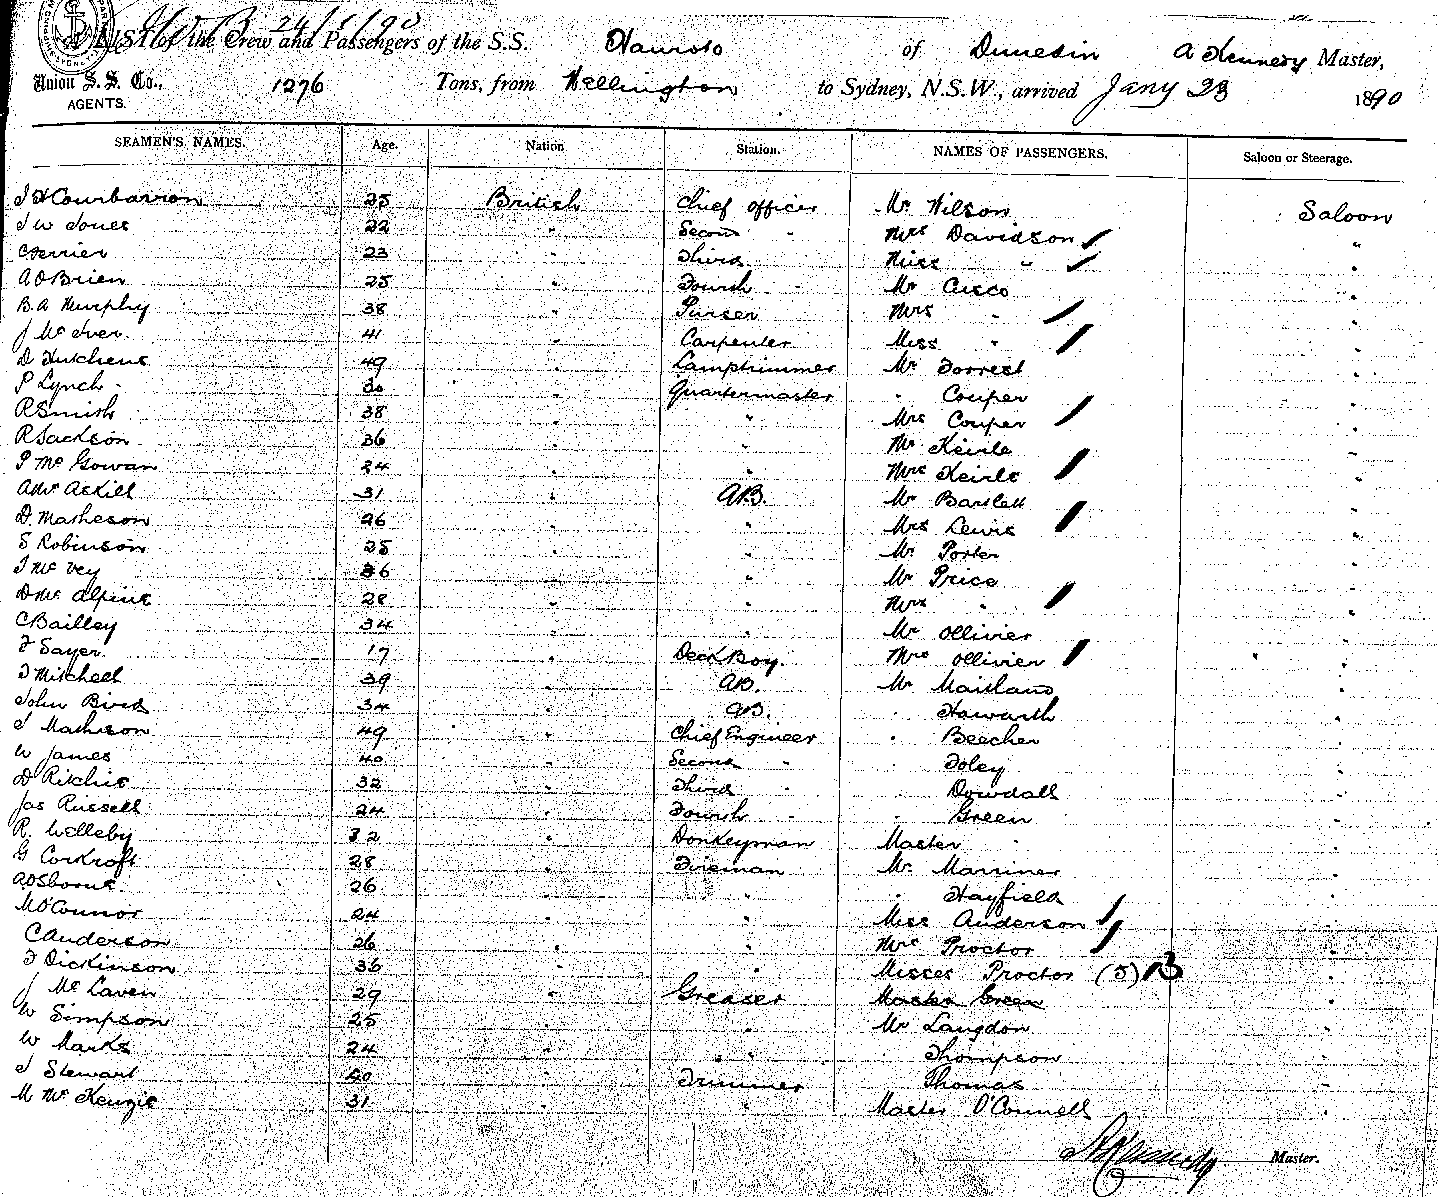 24/1/90
A LIST of the Crew and Passengers of the S.S. Hauroto of Dunedin A Kennedy Master,
Union S. S. Co., AGENTS. 1276 Tons, from Wellington to Sydney, N.S.W., arrived Jany 23 1890
SEAMEN'S NAMES. Age. Nation Station. NAMES OF PASSENGERS. Saloon or Steerage.
J H Courbarron 25 British Chief officer Mr Wilson Saloon
J W Jones 22 " Second " Mrs Davidson "
C Ferrier 23 " Third " Miss " "
A O'Brien 25 " Fourth " Mr Cisco "
B. A Murphy 38 " Purser Mrs " "
J McIver 41 " Carpenter Miss " "
D Hutchens 49 " Lamptrimmer Mr Forrest "
P Lynch 30 " Quartermaster " Couper "
R Smith 38 " " Mrs Couper "
R Jackson 36 " " Mr Keirle "
P Mc Gowan 24 " " Mrs Keirle "
A Mc Askill 31 " A.B. Mr Bartlett "
D. Matheson 26 " " Mrs Lewis "
S Robinson 25 " " Mr Porter "
J Mc Vey 36 " " Mr Price "
D Mc Alpine 28 " " Mrs " "
C Bailley 34 " " Mr Ollivier "
F Sayer 17 " Deck Boy. Mrs Ollivier "
T Mitchell 39 " AB. Mr Maitland "
John Bird 34 " AB. " Howarth "
J Matheson 49 " Chief Engineer " Beecher "
W James 40 " Second " " Foley "
D Ritchie 32 " Third " " Dowdall "
Jas Russell 24 " Fourth " " Green "
R. Welleby 32 " Donkeyman Master " "
G Corkroft 28 " Fireman Mr Marriner "
A Osborne 26 " " " Hayfield "
M O'Connor 24 " " Miss Anderson "
C Anderson 26 " " Mrs Proctor "
F Dickinson 36 " " Misses Proctor (3) "
J Mc Laven 29 " Greaser Master Green "
W Simpson 25 " " Mr Langdon "
W Marks 24 " " Thompson "
J Stewart 40 " Trimmer Thomas "
M Mc Kenzie 31 " " Master O'Connell "
A Kennedy Master.